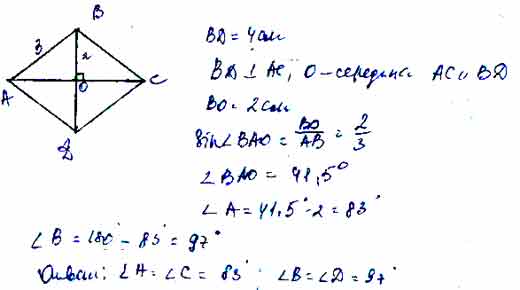 B
3
2
A
O
C
D
BD = 4 см
BD ⊥ AC, O – середина AC и BD
BO = 2 см
sin∠BAO = BO/AB = 2/3
∠BAO = 41,5°
∠A = 41,5°·2 = 83°
∠B = 180° – 83° = 97°
Ответ: ∠A = ∠C = 83° ∠B = ∠D = 97°